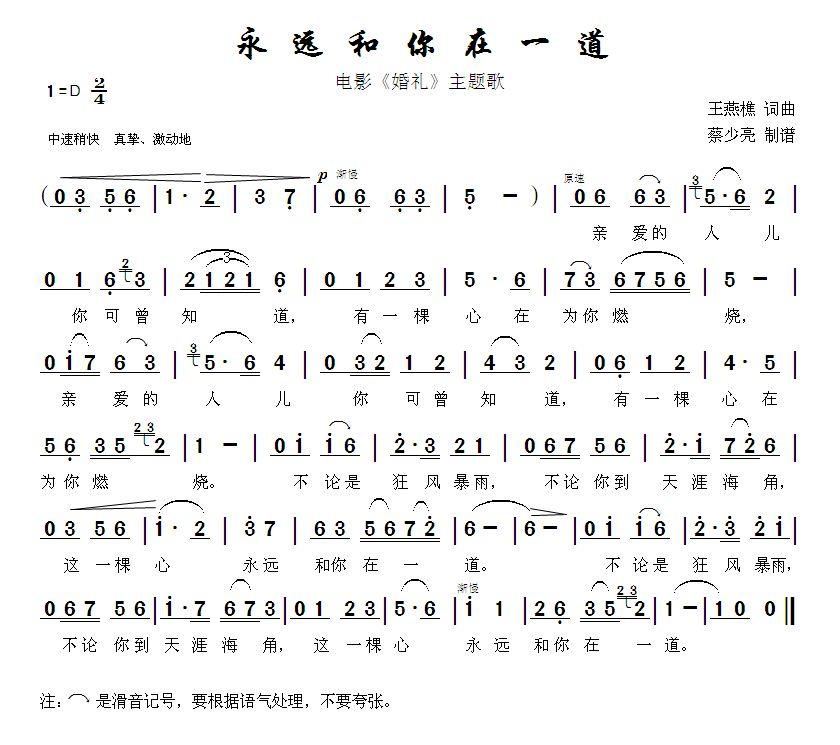 永远和你在一道
电影《婚礼》主题歌
1=D 2/4
王燕樵 词曲
中速稍快 真挚、激动地
蔡少亮 制谱
p 渐慢 原速
(0 3 5 6 | 1· 2 | 3 7 | 0 6 6 3 | 5 － ) | 0 6 6 3 | 3 5·6 2 |
亲 爱的 人 儿
0 1 6 2 3 | 2 1 2 1 6 | 0 1 2 3 | 5 · 6 | 7 3 6 7 5 6 | 5 － |
3
你 可曾 知 道， 有一棵 心 在 为你燃 烧，
0 i 7 6 3 | 3 5· 6 4 | 0 3 2 1 2 | 4 3 2 | 0 6 1 2 | 4· 5 |
亲 爱的 人 儿 你 可曾 知 道， 有一棵 心在
5 6 3 5 2 3 2 | 1 － | 0 i i 6 | 2·3 2 1 | 0 6 7 5 6 | 2·i 7 2 6 |
为你燃 烧。 不 论是 狂 风暴雨， 不论你到 天涯海角，
0 3 5 6 | i· 2 | 3 7 | 6 3 5 6 7 2 | 6 － | 6 － | 0 i i 6 | 2·3 2 i |
这 一棵 心 永远 和你 在 一 道。 不 论是 狂 风 暴雨，
渐慢
0 6 7 5 6 | i·7 6 7 3 | 0 1 2 3 | 5·6 | i 1 | 2 6 3 5 2 3 2 | 1 － | 1 0 0 ‖
不论 你到 天涯 海 角， 这 一棵 心 永 远 和你 在 一道。
注：⌒ 是滑音记号，要根据语气处理，不要夸张。